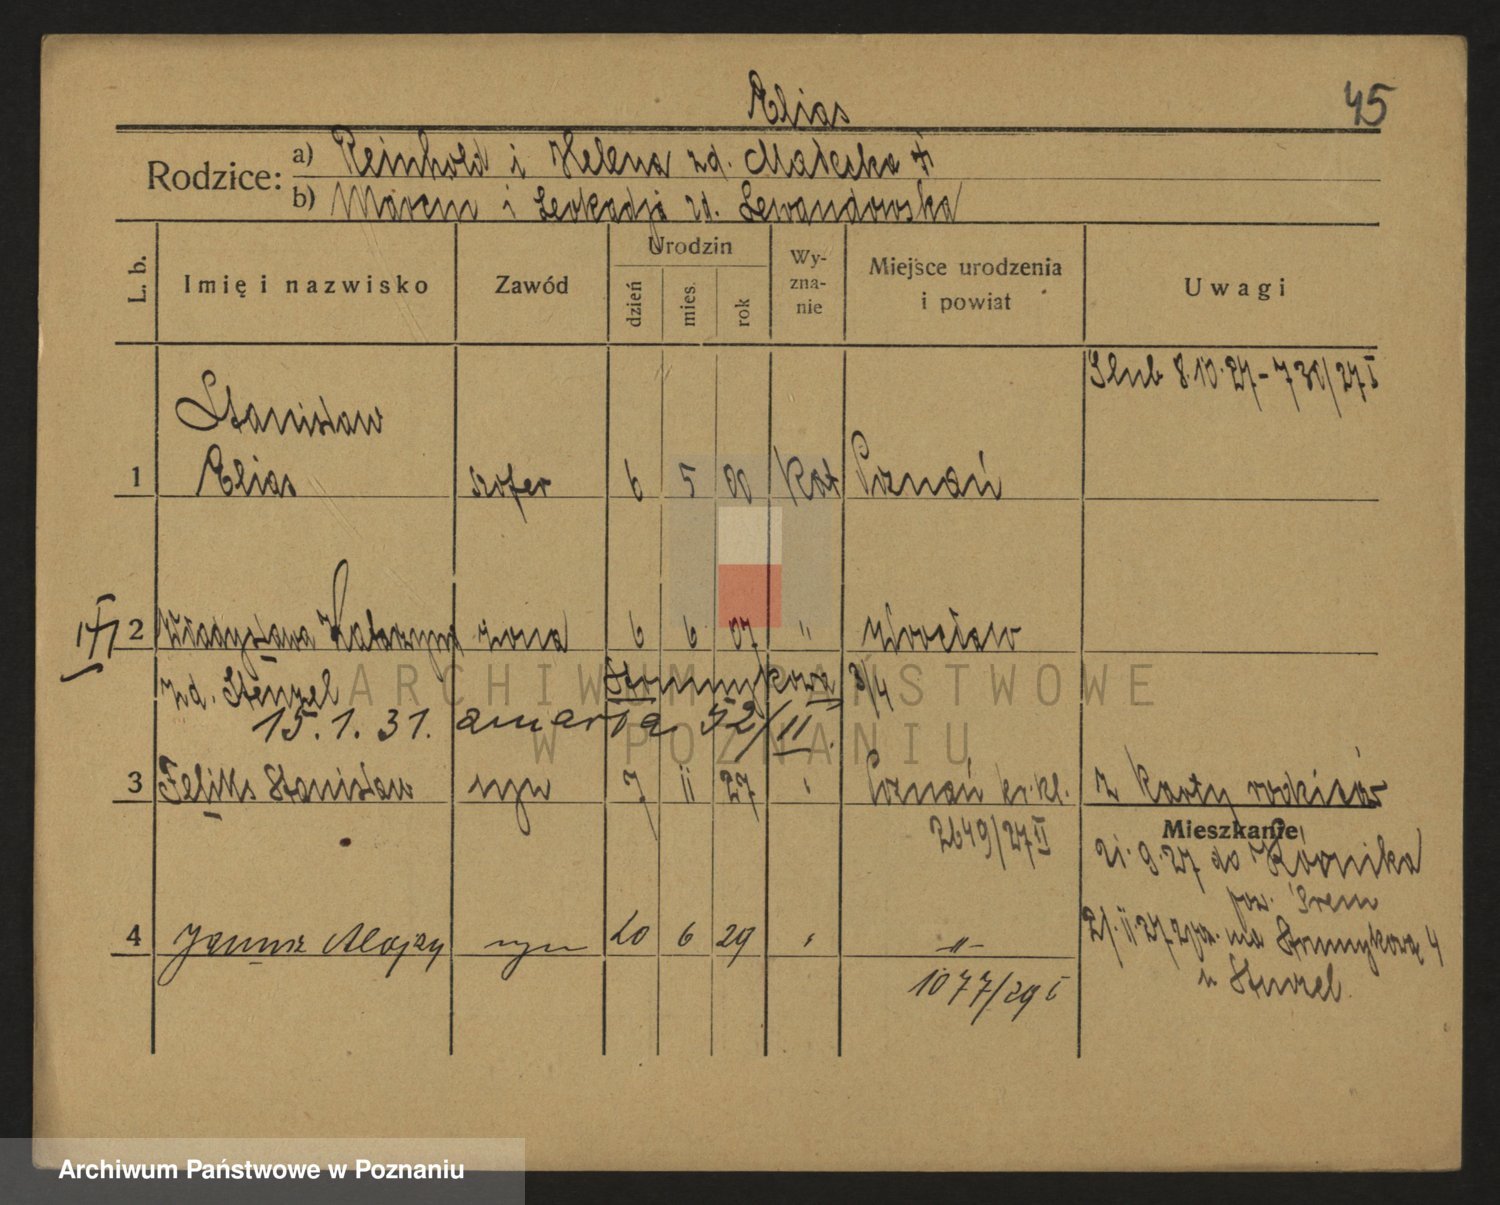 Elias
45
Rodzice:
a) Reinhold i Helena zd. Małecka
b) Marcin i Leokadja zd. Lewandowska
L. b.
Imię i nazwisko
Zawód
Urodzin
dzień
mies.
rok
Wy-
zna-
nie
Miejsce urodzenia
i powiat
Uwagi
Ślub 8.10.27 - 730/27 I
Stanisław
1 Elias szofer 6 5 00 Kat Poznań
2 Władysława Katarzyna żona 6 6 07 " Wrocław
zd. Stenzel Strumykowa 3/4
15.1.31. zmarła 52/II.
3 Feliks Stanisław syn 7 11 27 " Poznań kr.kl. z karty rodziców
2649/27 II
Mieszkanie
21.9.27 do Kórnika
pow. Śrem
4 Janusz Alojzy syn 20 6 29 " -"-
21.11.27 na Strumykową 4
u Stenzel.
1077/29 I
ARCHIWUM PAŃSTWOWE
W POZNANIU
Archiwum Państwowe w Poznaniu